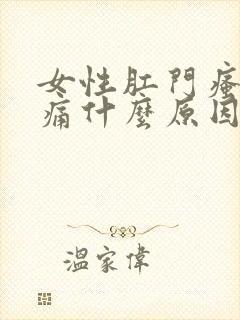 女性肛門瘙
痛什麼原因
溫家偉